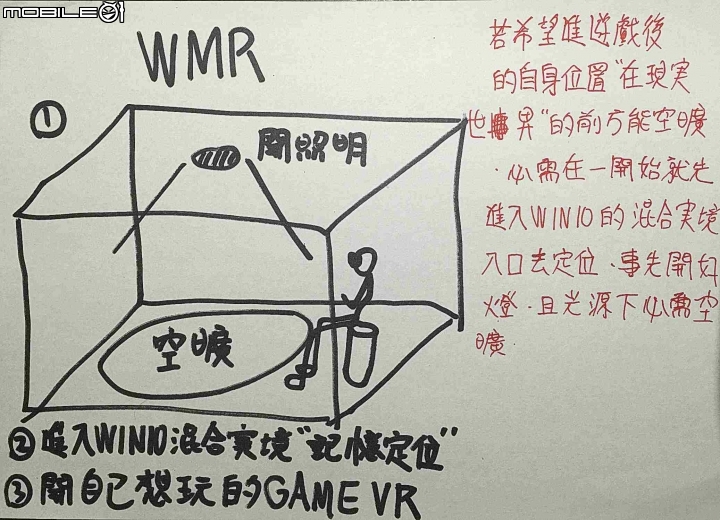 MOBILE01
WMR
①
開照明
空曠
②進入WIN10混合實境"記憶定位"
③開自己想玩的GAME VR
若希望進遊戲後
的自身位置"在現実
世界"的前方能空曠
．必需在一開始就先
進入WIN10的混合実境
入口去定位．事先開好
燈．且光源下必需空
曠．